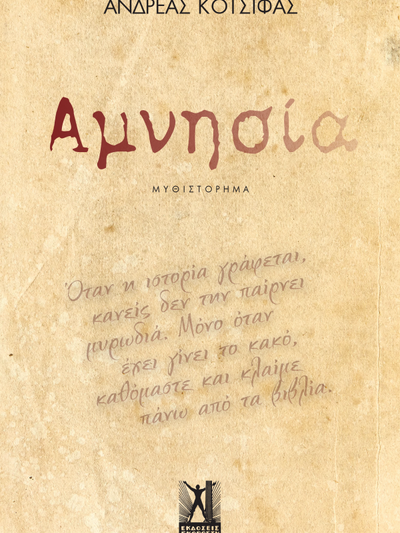 ΑΝΔΡΕΑΣ ΚΟΤΣΙΦΑΣ
Αμνησία
ΜΥΘΙΣΤΟΡΗΜΑ
Όταν η ιστορία γράφεται,
κανείς δεν την παίρνει
μυρωδιά. Μόνο όταν
έχει γίνει το κακό,
καθόμαστε και κλαίμε
πάνω από τα βιβλία.
ΕΚΔΟΣΕΙΣ